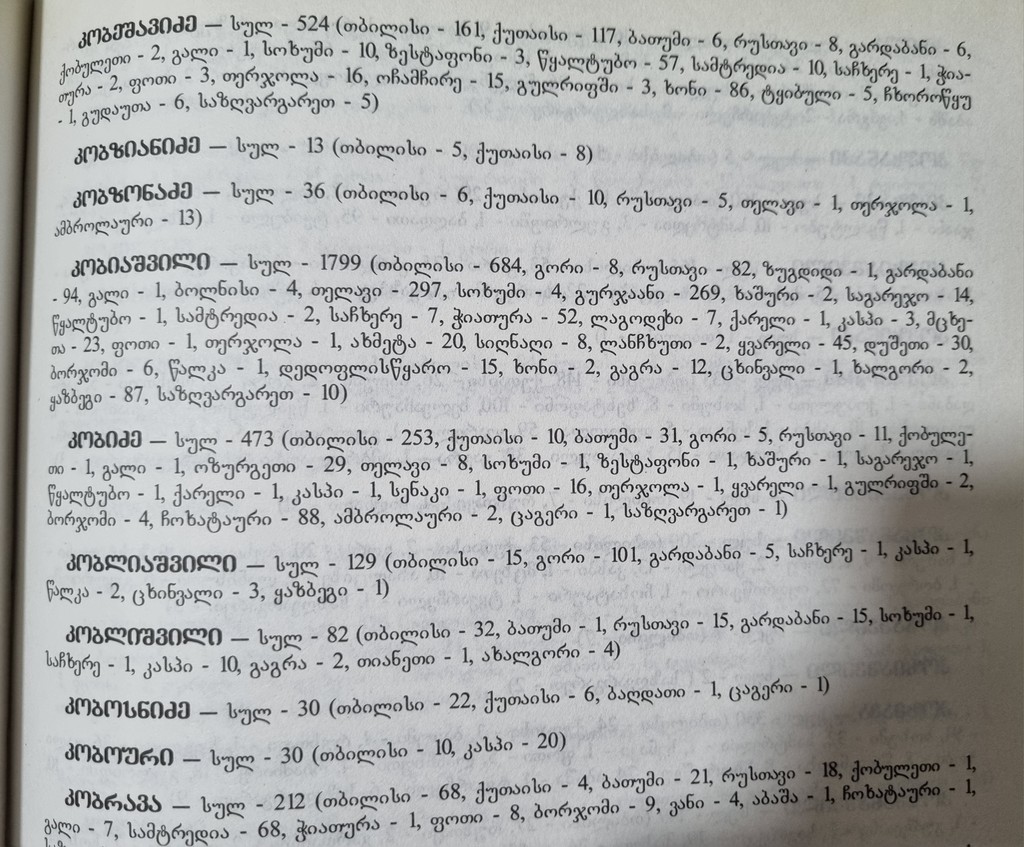 კობეშავიძე — სულ - 524 (თბილისი - 161, ქუთაისი - 117, ბათუმი - 6, რუსთავი - 8, გარდაბანი - 6,
ქობულეთი - 2, გალი - 1, სოხუმი - 10, ზესტაფონი - 3, წყალტუბო - 57, სამტრედია - 10, საჩხერე - 1, ჭია-
თურა - 2, ფოთი - 3, თერჯოლა - 16, ოჩამჩირე - 15, გულრიფში - 3, ხონი - 86, ტყიბული - 5, ჩხოროწყუ
- 1, გუდაუთა - 6, საზღვარგარეთ - 5)
კობზიანიძე — სულ - 13 (თბილისი - 5, ქუთაისი - 8)
კობზონაძე — სულ - 36 (თბილისი - 6, ქუთაისი - 10, რუსთავი - 5, თელავი - 1, თერჯოლა - 1,
ამბროლაური - 13)
კობიაშვილი — სულ - 1799 (თბილისი - 684, გორი - 8, რუსთავი - 82, ზუგდიდი - 1, გარდაბანი
- 94, გალი - 1, ბოლნისი - 4, თელავი - 297, სოხუმი - 4, გურჯაანი - 269, ხაშური - 2, საგარეჯო - 14,
წყალტუბო - 1, სამტრედია - 2, საჩხერე - 7, ჭიათურა - 52, ლაგოდეხი - 7, ქარელი - 1, კასპი - 3, მცხე-
თა - 23, ფოთი - 1, თერჯოლა - 1, ახმეტა - 20, სიღნაღი - 8, ლანჩხუთი - 2, ყვარელი - 45, დუშეთი - 30,
ბორჯომი - 6, წალკა - 1, დედოფლისწყარო - 15, ხონი - 2, გაგრა - 12, ცხინვალი - 1, ხალგორი - 2,
ყაზბეგი - 87, საზღვარგარეთ - 10)
კობიძე — სულ - 473 (თბილისი - 253, ქუთაისი - 10, ბათუმი - 31, გორი - 5, რუსთავი - 11, ქობულე-
თი - 1, გალი - 1, ოზურგეთი - 29, თელავი - 8, სოხუმი - 1, ზესტაფონი - 1, ხაშური - 1, საგარეჯო - 1,
წყალტუბო - 1, ქარელი - 1, კასპი - 1, სენაკი - 1, ფოთი - 16, თერჯოლა - 1, ყვარელი - 1, გულრიფში - 2,
ბორჯომი - 4, ჩოხატაური - 88, ამბროლაური - 2, ცაგერი - 1, საზღვარგარეთ - 1)
კობლიაშვილი — სულ - 129 (თბილისი - 15, გორი - 101, გარდაბანი - 5, საჩხერე - 1, კასპი - 1,
წალკა - 2, ცხინვალი - 3, ყაზბეგი - 1)
კობლიშვილი — სულ - 82 (თბილისი - 32, ბათუმი - 1, რუსთავი - 15, გარდაბანი - 15, სოხუმი - 1,
საჩხერე - 1, კასპი - 10, გაგრა - 2, თიანეთი - 1, ახალგორი - 4)
კობოსნიძე — სულ - 30 (თბილისი - 22, ქუთაისი - 6, ბაღდათი - 1, ცაგერი - 1)
კობოური — სულ - 30 (თბილისი - 10, კასპი - 20)
კობრავა — სულ - 212 (თბილისი - 68, ქუთაისი - 4, ბათუმი - 21, რუსთავი - 18, ქობულეთი - 1,
გალი - 7, სამტრედია - 68, ჭიათურა - 1, ფოთი - 8, ბორჯომი - 9, ვანი - 4, აბაშა - 1, ჩოხატაური - 1,